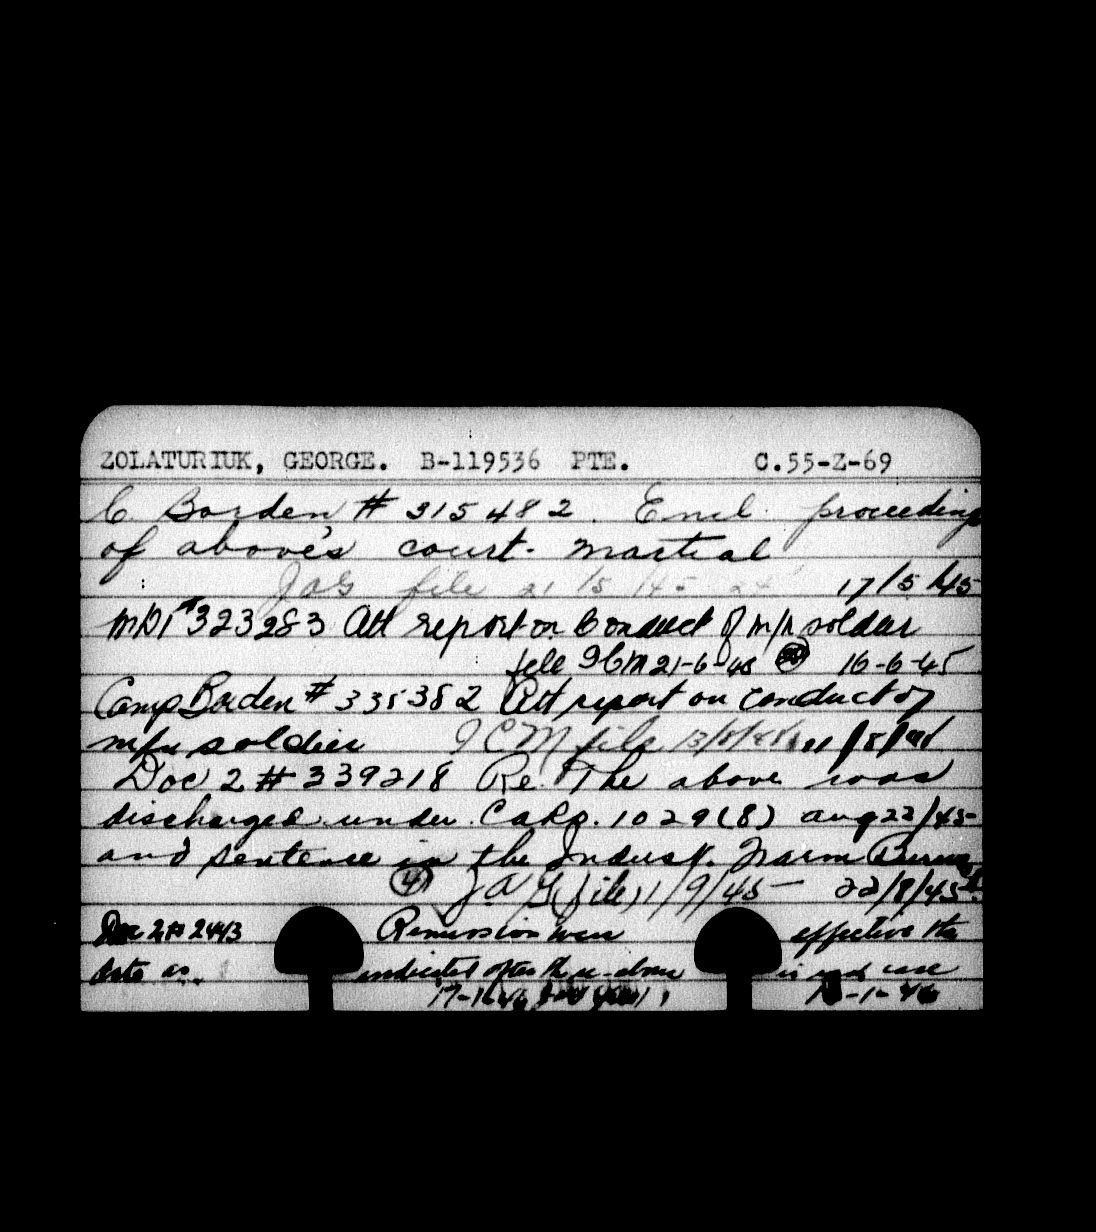 ZOLATURIUK, GEORGE. B-119536 PTE. C.55-Z-69
C. Borden # 315482. Encl. proceedings
of above's court-martial
JAG file 21/5/45 17/5/45
MD1 #323283 Att report on Conduct of m/n soldier
file ICM 21-6-45 16-6-45
Camp Borden # 335382 Att report on conduct of
m/n soldier ICM file 13/8/45 11/8/45
Doc 2 # 339218 Re. The above was
discharged under CARO. 1029(8) aug 22/45
and sentence in the Indust. Farm Burwash
4 J.A.G file 1/9/45 22/8/45
Doc 2 # 2443 Remission were effective the
date as indicated after the m-above case
17-1-46 -1-46